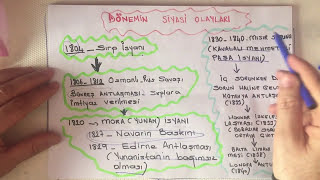 DÖNEMİN SİYASİ OLAYLARI
1804 - Sırp İsyanı
1806-1812 Osmanlı-Rus Savaşı
BÜKREŞ ANTLAŞMASI - Sırplara
İmtiyaz verilmesi
1820 - MORA (YUNAN) İSYANI
1827 - Navarin Baskını
1829 - Edirne Antlaşması
(Yunanistan'ın bağımsız
olması)
1830-1840 MISIR
(KAVALALI MEHMET
PAŞA İSYANI)
İÇ SORUNDEN
SORUN HALİNE GEL
KÜTAHYA ANTLAŞ
(1833)
(BOĞAZLAR
ORTAYA ÇIKT
BALTA LİMAN
MASI (1838)
LONDRA